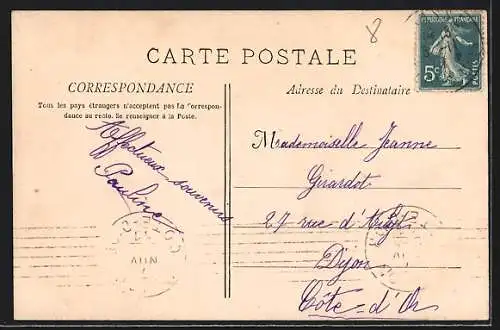 8
RÉPUBLIQUE FRANÇAISE
5c
POSTES
CARTE POSTALE
CORRESPONDANCE
Tous les pays étrangers n'acceptent pas la Correspon-
dance au recto. Se renseigner à la Poste.
Adresse du Destinataire
Affectueux souvenirs
Pauline
Mademoiselle Jeanne
Girardot
27 rue d'
Dijon
Côte-d'Or